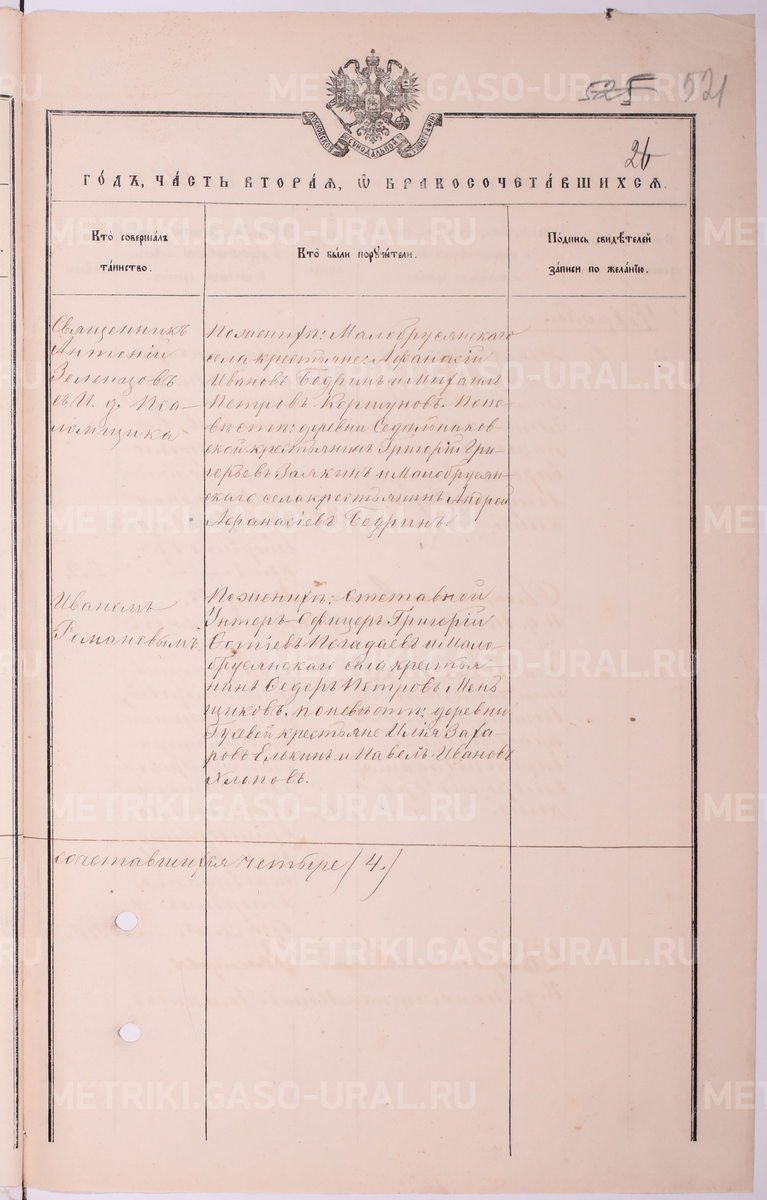 525 521
МОСКОВСКОЙ СѴНОДАЛЬНОЙ ТИПОГРАФІИ
26
ГОДЪ, ЧАСТЬ ВТОРАЯ, Ѡ БРАКОСОЧЕТАВШИХСЯ.
Кто совершалъ
таинство.
Кто были поручители.
Подпись свидѣтелей
записи по желанію.
Священникъ
Антоній
Зеленцовъ
съ И. д. Пса-
ломщика
Иваномъ
Романовымъ
По женихѣ: Малобрусянскаго
села крестьяне: Афанасій
Ивановъ Бедринъ и Михаилъ
Петровъ Коршуновъ. По не-
вѣстѣ: деревни
ской крестьянинъ Григорій Гри-
горьевъ Заякинъ и Малобрусян-
скаго села крестьянинъ Андрей
Афанасіевъ Бедринъ.
По женихѣ: отставной
Унтеръ-Офицеръ Григорій
Фотіевъ Погадаевъ и Мало-
брусянскаго села крестья-
нинъ Федоръ Петровъ Мень
щиковъ. по невѣстѣ: деревни
Гусевой крестьяне Илія Заха
ровъ Елькинъ и Павелъ Ивановъ
Хлоповъ.
сочетавшихся четыре (4.)
METRIKI.GASO-URAL.RU